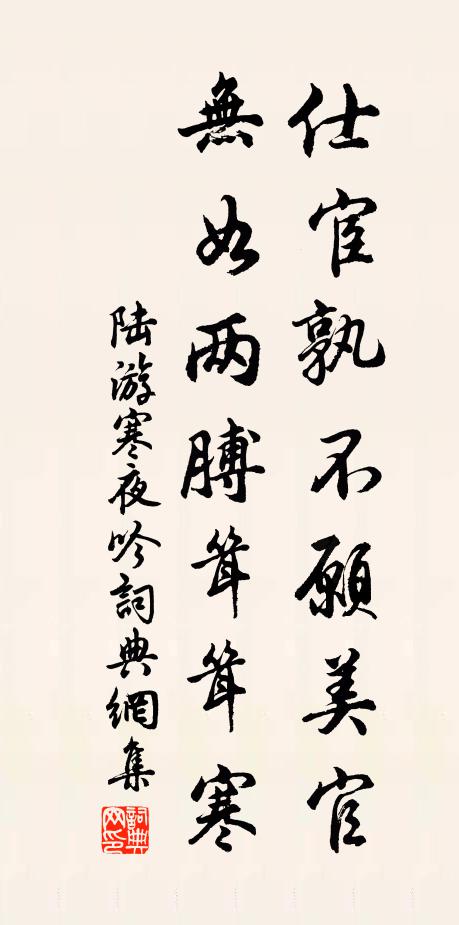 仕宦孰不願美官
無如两膊耸耸寒
陆游寒夜吟詞典網集
詞典网印